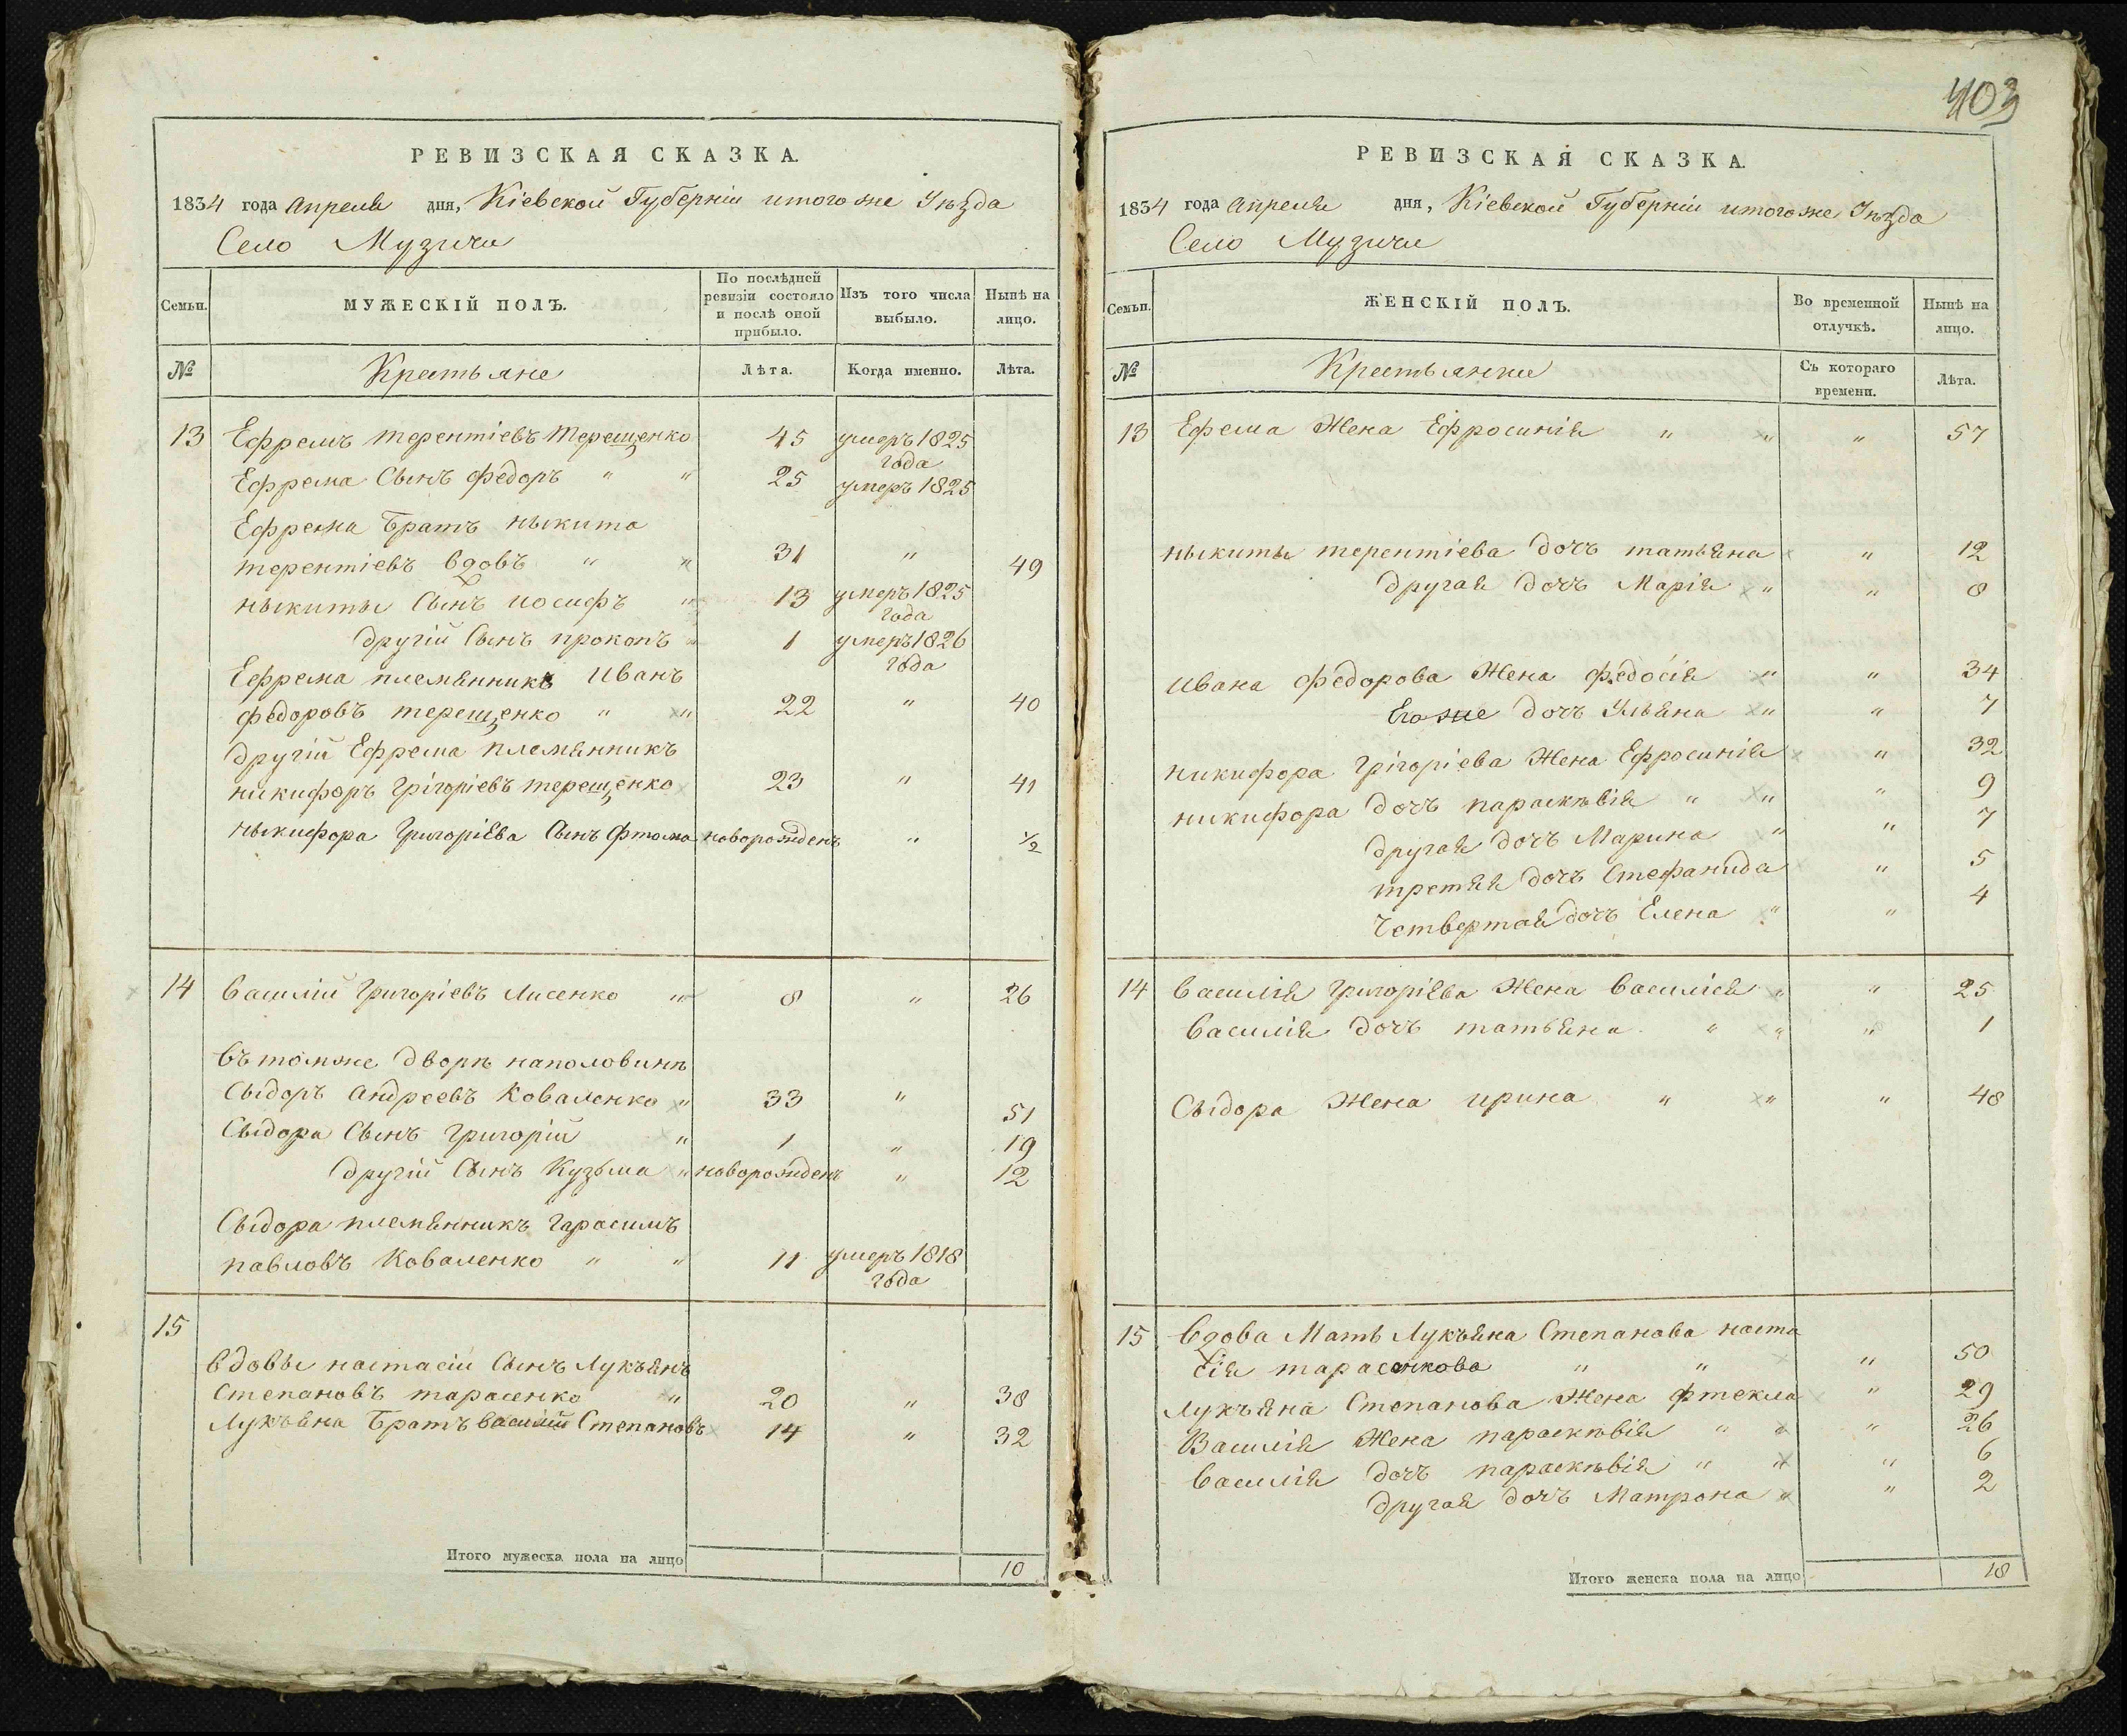 403
РЕВИЗСКАЯ СКАЗКА.
1834 года Апреля дня, Кіевской Губерніи итогоже Уѣзда
Село Музичи
Семьи.
МУЖЕСКІЙ ПОЛЪ.
По послѣдней ревизіи состояло и послѣ оной прибыло.
Изъ того числа выбыло.
Нынѣ на лицо.
№
Крестьяне
Лѣта.
Когда именно.
Лѣта.
13 Ефремъ терентіевъ терещенко 45 умеръ 1825 года
Ефрема Сынъ федоръ " " 25 умеръ 1825
Ефрема Братъ ныкита
терентіевъ вдовъ " " 31 " 49
ныкиты Сынъ иосифъ " 13 умеръ 1825 года
другій Сынъ прокопъ " 1 умеръ 1826 года
Ефрема племянникъ Иванъ
федоровъ терещенко " " 22 " 40
другій Ефрема племянникъ
никифоръ Грігоріевъ терещенко 23 " 41
ныкифора Григоріева Сынъ фтома новорожденъ " 1/2
14 Василій Григоріевъ Лисенко " 8 " 26
въ томже дворѣ наполовинѣ
Сыдоръ Андреевъ Коваленко " 33 " 51
Сыдора Сынъ Григорій " 1 " 19
другій Сынъ Кузьма " новорожденъ " 12
Сыдора племянникъ Гарасимъ
павловъ Коваленко " " 11 умеръ 1818 года
15
вдовы настасіи Сынъ Лукъянъ
Степановъ тарасенко " 20 " 38
Лукъяна Братъ василій Степановъ 14 " 32
Итого мужеска пола на лицо 10
РЕВИЗСКАЯ СКАЗКА.
1834 года Апреля дня, Кіевской Губерніи итогоже Уѣзда
Село Музичи
Семьи.
ЖЕНСКІЙ ПОЛЪ.
Во временной отлучкѣ.
Нынѣ на лицо.
№
Крестьянки
Съ котораго времени.
Лѣта.
13 Ефема Жена Ефросинія " " " 57
ныкиты терентіева дочъ татьяна " 12
другая дочъ Марія " " 8
ивана федорова Жена федосія " " 34
Егоже дочъ Ульяна " " 7
никифора Грігоріева Жена Ефросинія " 32
никифора дочъ параскѣвія " " " 9
другая дочъ Марина " " 7
третяя дочъ Стефанида " 5
Четвертая дочъ Елена " " 4
14 Василія Григоріева Жена Василіса " " 25
Василія дочъ татьяна " " " 1
Сыдора Жена ирина " " " 48
15 Вдова Мать Лукъяна Степанова наста
сія тарасенкова " " " 50
Лукъяна Степанова Жена фтекла " 29
Василія Жена параскѣвія " " " 26
Василія дочъ параскѣвія " " " 6
другая дочъ Матрона " " 2
Итого женска пола на лицо 18